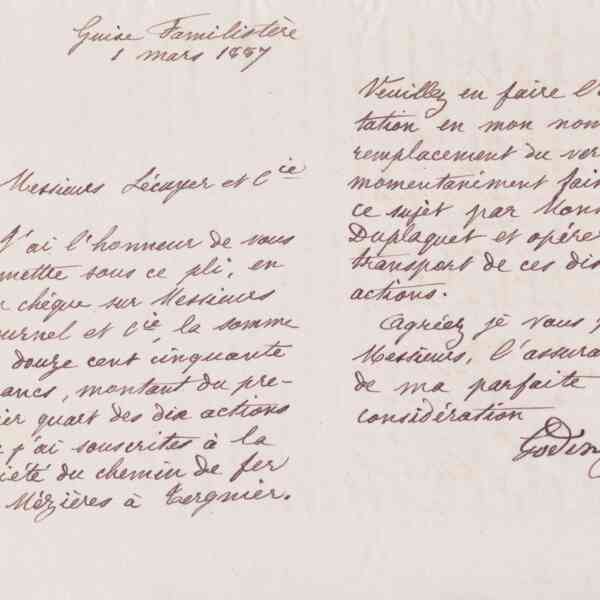 Guise Familistère
1 mars 1887
Messieurs Lécuyer et Cie
J'ai l'honneur de vous
mettre sous ce pli, en
chèque sur Messieurs
ournel et Cie, la somme
douze cent cinquante
ancs, montant du pre-
ier quart des dix actions
j'ai souscrites à la
iété du chemin de fer
Mézières à Tergnier.
Veuillez en faire l'
tation en mon nom
remplacement du ver
momentanément fai
ce sujet par Mon
Duplaquet et opére
transport de ces dix
actions.
Agréez je vous
Messieurs, l'assura
de ma parfaite
considération
Godin